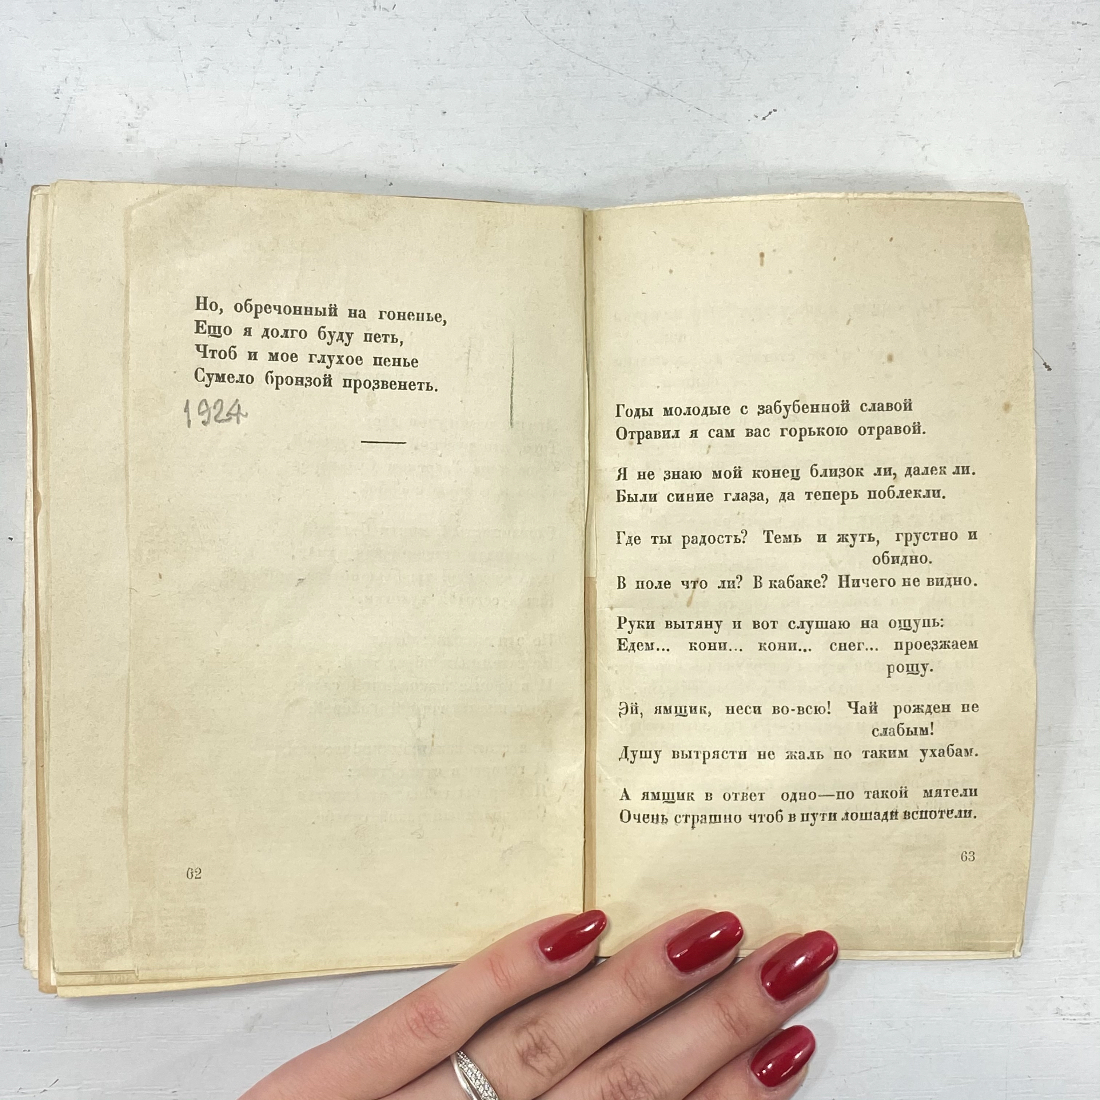 Но, обречонный на гоненье,
Ещо я долго буду петь,
Чтоб и мое глухое пенье
Сумело бронзой прозвенеть.
1924
62
Годы молодые с забубенной славой
Отравил я сам вас горькою отравой.
Я не знаю мой конец близок ли, далек ли.
Были синие глаза, да теперь поблекли.
Где ты радость? Темь и жуть, грустно и
обидно.
В поле что ли? В кабаке? Ничего не видно.
Руки вытяну и вот слушаю на ощупь:
Едем... кони... кони... снег... проезжаем
рощу.
Эй, ямщик, неси во-всю! Чай рожден не
слабым!
Душу вытрясти не жаль по таким ухабам.
А ямщик в ответ одно—по такой мятели
Очень страшно чтоб в пути лошади вспотели.
63